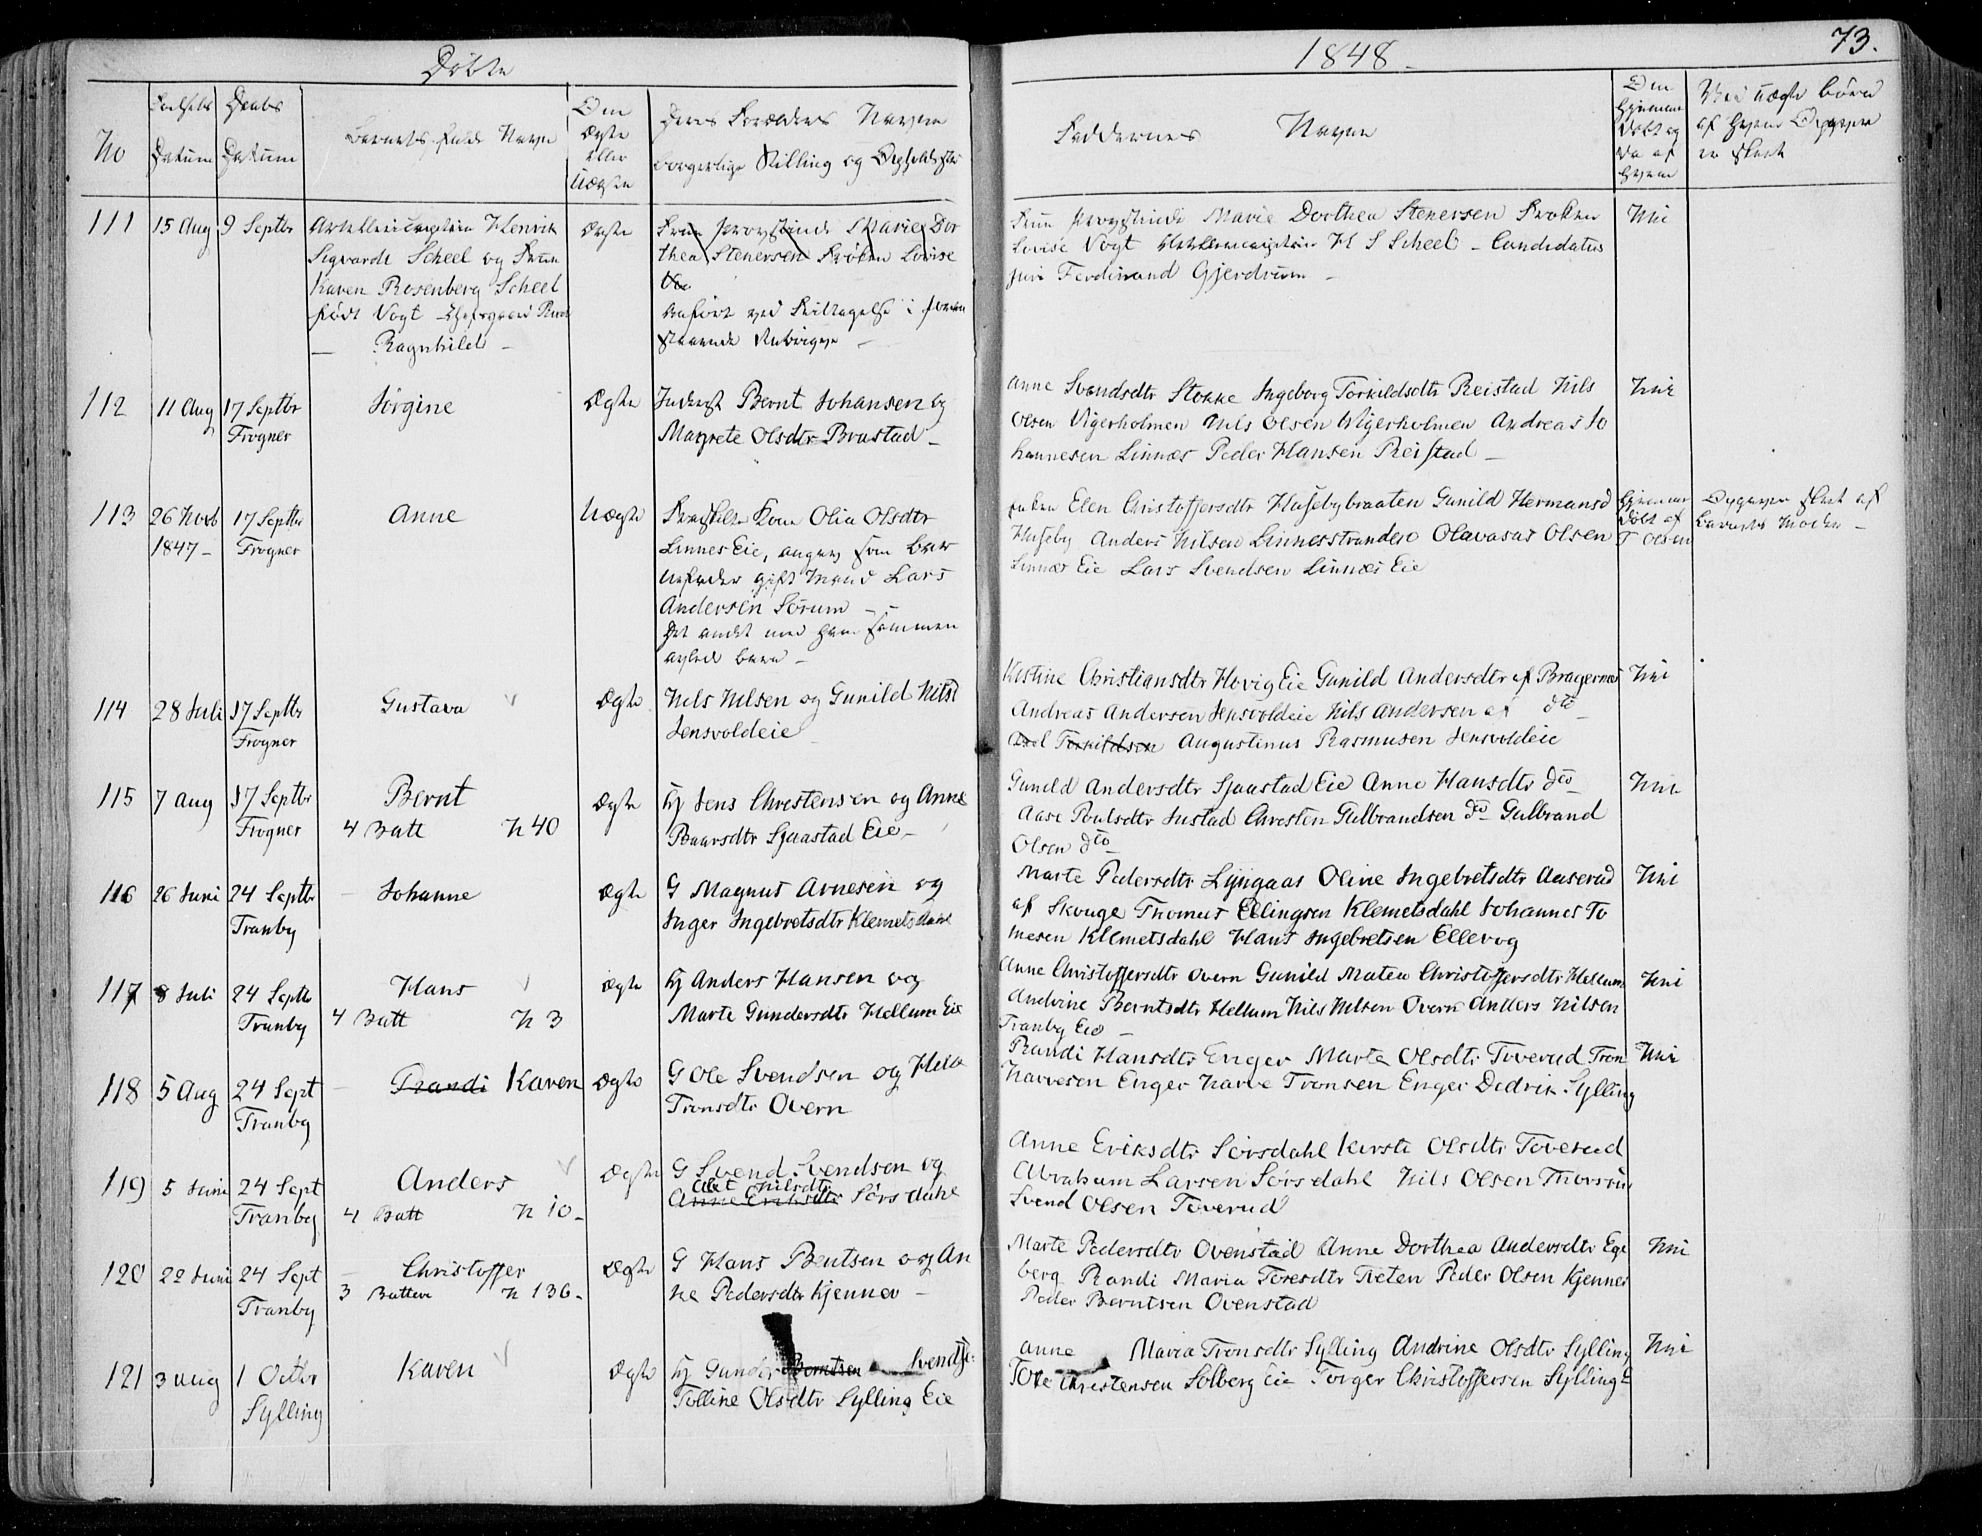 Døbte
1848.
73.
No
Fødsels Datum
Daabs Datum
Barnets fulde Navn
Om Ægte eller Uægte
Deres Forældres Navne
borgerlige Stilling og Opholdssted
Faddernes Navne
Om hjemmedøbt og da af hvem
Ved uægte børn af hvem Opgaven er skeet
111 15 Aug 9 Septbr
Artellericaptein Henrik
Sigvardt Scheel og Frue
Karen Rosenberg Scheel
født Vogt
Ragnhild
Ægte
Frue Provstinde Marie Dor
thea Stenersen Frøken Lovise
Vo
anført ved Feiltagelse i foran
staaende Rubrique
Frue Provstinde Marie Dorthea Stenersen Frøken
Lovise Vogt Artellericaptein H S Scheel - Candidatus
juri Ferdinand Gjerdrum -
Nei
112 11 Aug 17 Septbr
Frogner
Jørgine
Ægte
Inderst Bernt Johansen og
Margrete Olsdtr Brastad -
Anne Svendsdtr Stokke Ingeborg Torkildsdtr Reistad Nils
Olsen Vigerholmen Nils Olsen Vigerholmen Andreas Jo
hannesen Linnæs Peder Hansen Reistad -
Nei
113 26 Novb 1847 - 17 Septbr
Frogner
Anne
Uægte
Fraskilte Kone Olia Olsdtr
Linnes Eie, angav som Bar
nefader gift Mand Lars
Andersen Sørum -
Det andet med ham sammen
avlede barn -
Enken Elen Christoffersdtr Husebybraaten Gunild Hermansd
Huseby Anders Nilsen Linnesstranden Olavasas Olsen
Linnæs Eie Lars Svendsen Linnæs Eie
Hjemme
døbt af
T Olsen
Opgaven skeet af
Barnets Moder -
114 28 Juli 17 Septbr
Frogner
Gustava
Ægte
Nils Nilsen og Gunild Nilsd
Jensvoldeie
Kistine Christiansdtr Hovig Eie Gunild Andersdtr af Bragernæs
Andreas Andersen Jensvoldeie Nils Andersen af dto
Axel Torkildsen Augustinus Rasmusen Jensvoldeie
Nei
115 7 Aug 17 Septbr
Frogner
Bernt
4 Batt N 40
Ægte
Hj Jens Christensen og Anne
Paavsdtr Sjaastad Eie -
Gunild Andersdtr Sjaastad Eie Anne Hansdtr dto
Aase Poulsdtr Justad Christen Gulbrandsen do Gulbrand
Olsen dto
Nei
116 26 Juni 24 Septbr
Tranby
- Johanne
Ægte
G Magnus Arnesen og
Inger Ingebretsdtr Klemetsdahl
Marte Pedersdtr Lyngaas Oline Ingebretsdtr Aaserud
af Skouge Thomas Ellingsen Klemetsdahl Johannes To
mesen Klemetsdahl Hans Ingebretsen Ellevog
Nei
117 8 Juli 24 Septbr
Tranby
Hans
4 Batt N 3
Ægte
Hj Anders Hansen og
Marte Gundersdtr Hellum Eie
Anne Christoffersdtr Overn Gunild Matea Christoffersdtr Hellum
Andrine Berntsdtr Hellum Nils Nilsen Overn Anders Nilsen
Tranby Eie -
Nei
118 5 Aug 24 Sept
Tranby
- Randi Karen
Ægte
G Ole Svendsen og Helle
Tronsdtr Overn
Randi Hansdtr Enger Marte Olsdtr Toverud Tron
Narvesen Enger Narve Tronsen Enger Dedrik Sylling
Nei
119 5 Juni 24 Sept
Tranby
Anders
4 Batt N 10 -
Ægte
G Svend Svendsen og
Alet Nilsdtr
Anne Eriksdtr Sørsdahl
Anne Eriksdtr Sørsdahl Kirsti Olsdtr Toverud
Abraham Larsen Sørsdahl Nils Olsen Thorsrud
Svend Olsen Toverud
120 22 Juni 24 Sept
Tranby
- Christoffer
3 Batteri N 136 -
Ægte
G Hans Bentsen og An
ne Pedersdtr Kjenner -
Marte Pedersdtr Ovenstad Anne Dorthea Andersdtr Ege
berg Randi Maria Toresdtr Tveten Peder Olsen Kjenner
Peder Berntsen Ovenstad
Nei
121 3 Aug 1 Octbr
Sylling
Karen
Ægte
Hj Gunder Berntsen Svendse
Tolline Olsdtr Sylling Eie
Anne Maria Tronsdtr Sylling Andrine Olsdtr Sylling
Tore Christensen Solberg Eie Torger Christoffersen Sylling E
Nei